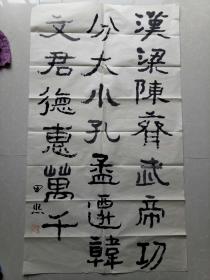 漢梁陳齊武帝功
分大小孔孟遷韓
文君德惠萬千